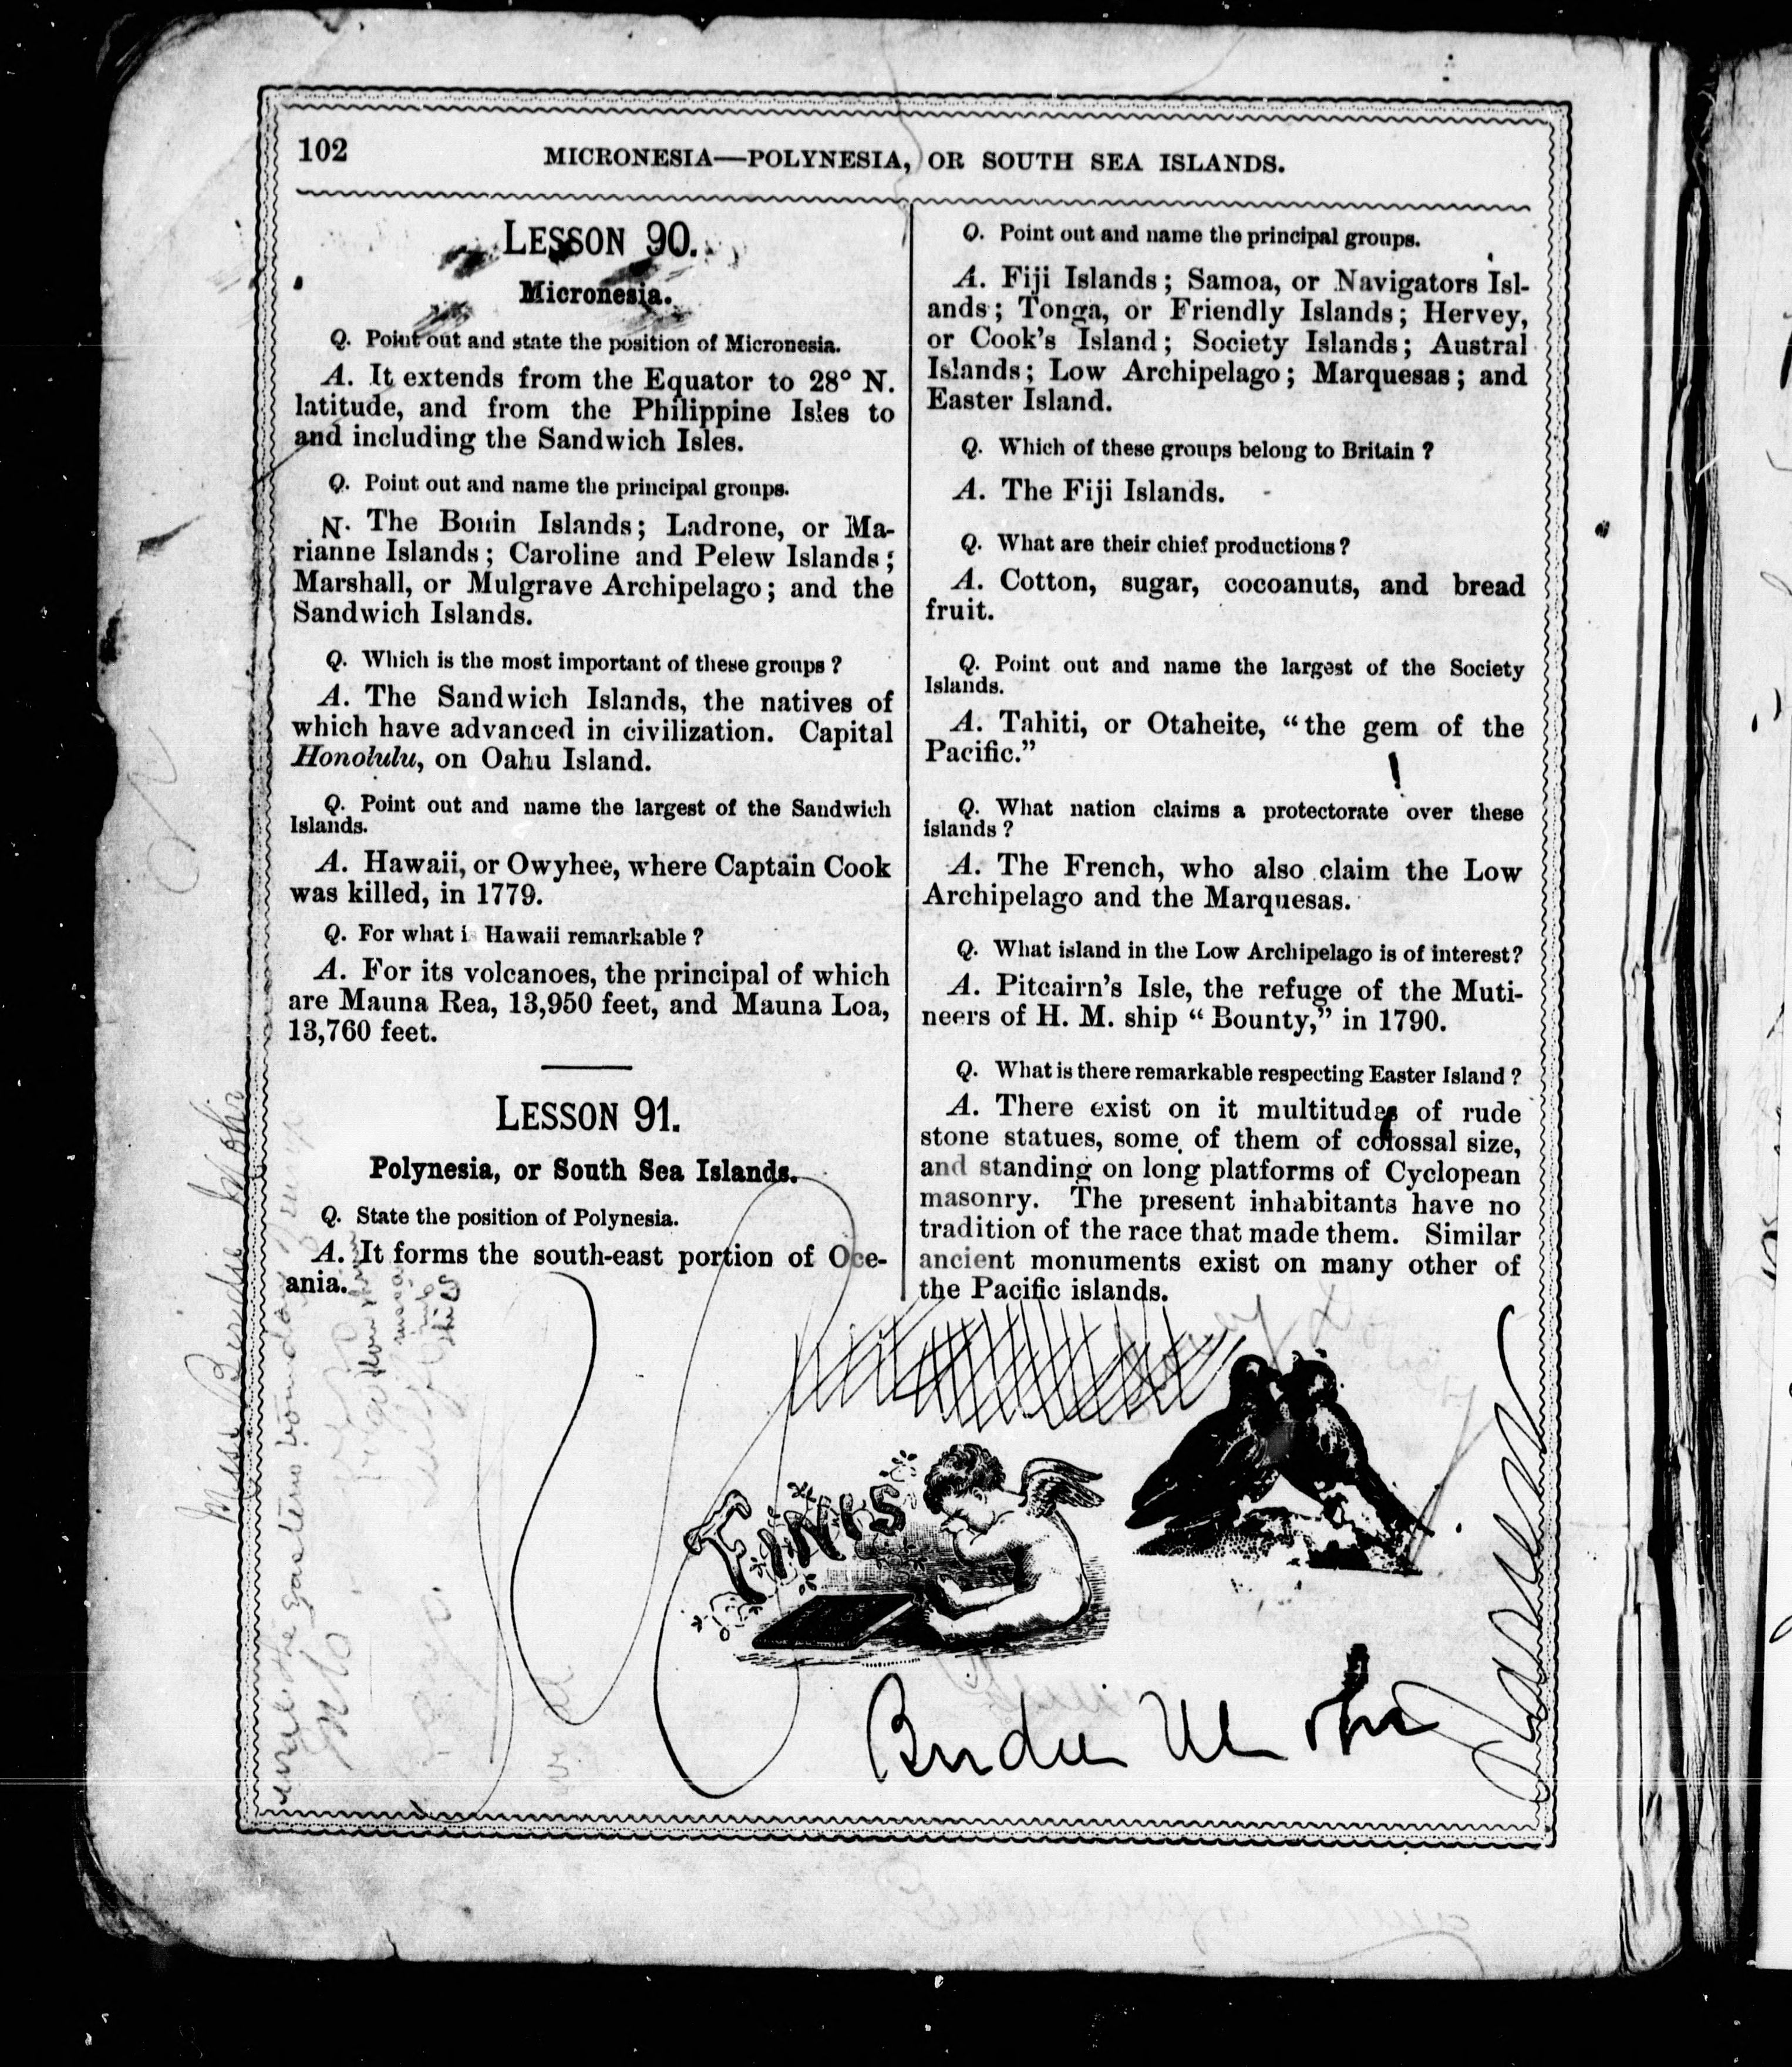 102
MICRONESIA—POLYNESIA, OR SOUTH SEA ISLANDS.
LESSON 90.
Micronesia.
Q. Point out and state the position of Micronesia.
A. It extends from the Equator to 28° N.
latitude, and from the Philippine Isles to
and including the Sandwich Isles.
Q. Point out and name the principal groups.
N. The Bonin Islands; Ladrone, or Ma-
rianne Islands; Caroline and Pelew Islands;
Marshall, or Mulgrave Archipelago; and the
Sandwich Islands.
Q. Which is the most important of these groups?
A. The Sandwich Islands, the natives of
which have advanced in civilization. Capital
Honolulu, on Oahu Island.
Q. Point out and name the largest of the Sandwich
Islands.
A. Hawaii, or Owyhee, where Captain Cook
was killed, in 1779.
Q. For what i Hawaii remarkable?
A. For its volcanoes, the principal of which
are Mauna Rea, 13,950 feet, and Mauna Loa,
13,760 feet.
LESSON 91.
Polynesia, or South Sea Islands.
Q. State the position of Polynesia.
A. It forms the south-east portion of Oce-
ania.
Q. Point out and name the principal groups.
A. Fiji Islands; Samoa, or Navigators Isl-
ands; Tonga, or Friendly Islands; Hervey,
or Cook's Island; Society Islands; Austral
Islands; Low Archipelago; Marquesas; and
Easter Island.
Q. Which of these groups belong to Britain?
A. The Fiji Islands.
Q. What are their chief productions?
A. Cotton, sugar, cocoanuts, and bread
fruit.
Q. Point out and name the largest of the Society
Islands.
A. Tahiti, or Otaheite, "the gem of the
Pacific."
Q. What nation claims a protectorate over these
islands?
A. The French, who also claim the Low
Archipelago and the Marquesas.
Q. What island in the Low Archipelago is of interest?
A. Pitcairn's Isle, the refuge of the Muti-
neers of H. M. ship "Bounty," in 1790.
Q. What is there remarkable respecting Easter Island?
A. There exist on it multitudes of rude
stone statues, some of them of colossal size,
and standing on long platforms of Cyclopean
masonry. The present inhabitants have no
tradition of the race that made them. Similar
ancient monuments exist on many other of
the Pacific islands.
Finis
Miss Birdie
the Eastern boundary